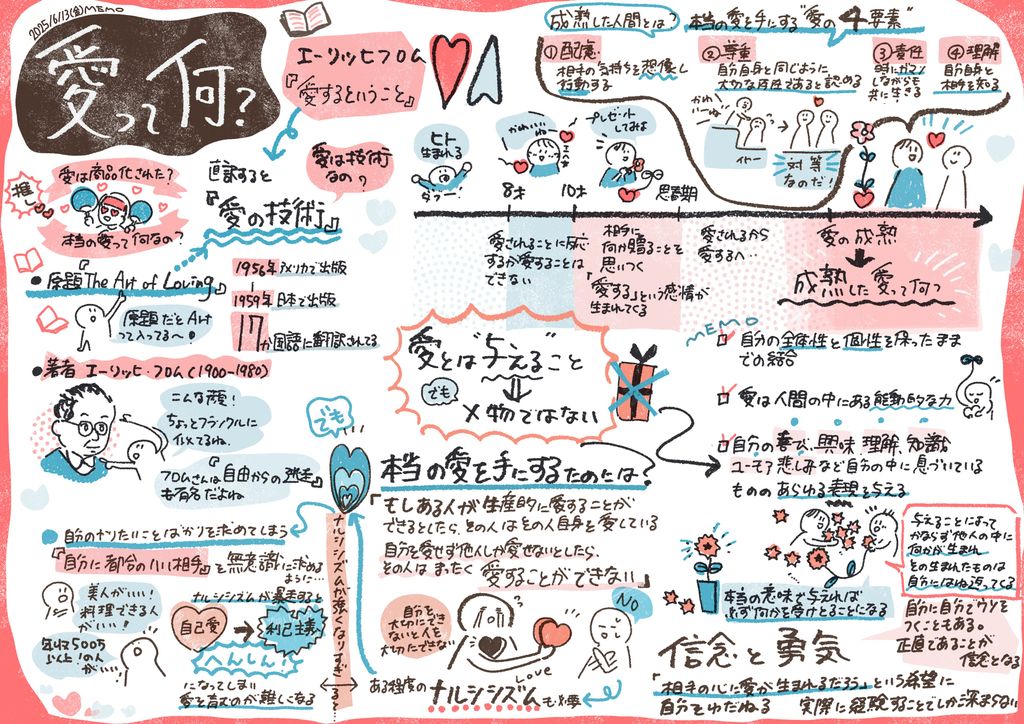 2025/6/13(金)MEMO
愛って何?
エーリッヒフロム
『愛するということ』
直訳すると
『愛の技術』
愛は技術
なの?
推し
愛は商品化された?
本当の愛って何なの?
●原題『The Art of Loving』
1956年アメリカで出版
1959年日本で出版
17か国語に翻訳されてる
原題だとArt
って入ってるへ〜!
●著者 エーリッヒ・フロム(1900-1980)
こんな顔!
ちょっとフランクルに
似てるね。
フロムさんは『自由からの逃走』
も有名だよね
成熟した人間とは? 本当の愛を手にする"愛の4要素"
①配慮
相手の気持ちを想像し
行動する
②尊重
自分自身と同じように
大切な存在であると認める
③責任
時にガマン
しながらも
共に生きる
④理解
自分自身と
相手を知る
かわいーね
対等
なのだ!
ヒト
生まれる
かわいい
ね
8才
プレゼント
してみよ
10才
思春期
愛されることに反応
するが愛することは
できない
相手に
何か贈ることを
思いつく
「愛する」という感情が
生まれてくる
愛されるから
愛するへ…
愛の成熟
成熟した愛って何?
MEMO
自分の全体性と個性を保ったまま
での結合
愛は人間の中にある能動的な力
自分の喜び、興味、理解、知識
ユーモア 悲しみなど自分の中に息づいている
もののあらゆる表現を与える
愛とは"与える"こと
でも
×物ではない
でも
本当の愛を手にするためには?
「もしある人が生産的に愛することが
できるとしたら、その人はその人自身を愛している
自分を愛せず他人しか愛せないとしたら、
その人は まったく 愛することができない」
●自分のなりたいことばかりを求めてしまう
『自分に都合のいい相手』を無意識に求め
るように…
美人がいい!
料理できる人
がいい…
年収500万
以上の人
がいい…
ナルシシズムが暴走すると
自己愛
利己主義
へんしん!
になってしまい
愛を育むのが難しくなる
ナルシシズムが強くなりすぎる?
自分を
大切にでき
ないと人を
大切にできない
LOVE
NO
ある程度のナルシシズムも必要
本当の意味で与えれば
必ず何かを受けとることになる
与えることによって
かならず他人の中に
何かが生まれ
その生まれたものは
自分にはね返ってくる
自分に自分でウソを
つくこともある。
正直であることが
信念となる
信念と勇気
「相手の心に愛が生まれるだろう」という希望に
自分をゆだねる 実際に経験することでしか深まらない